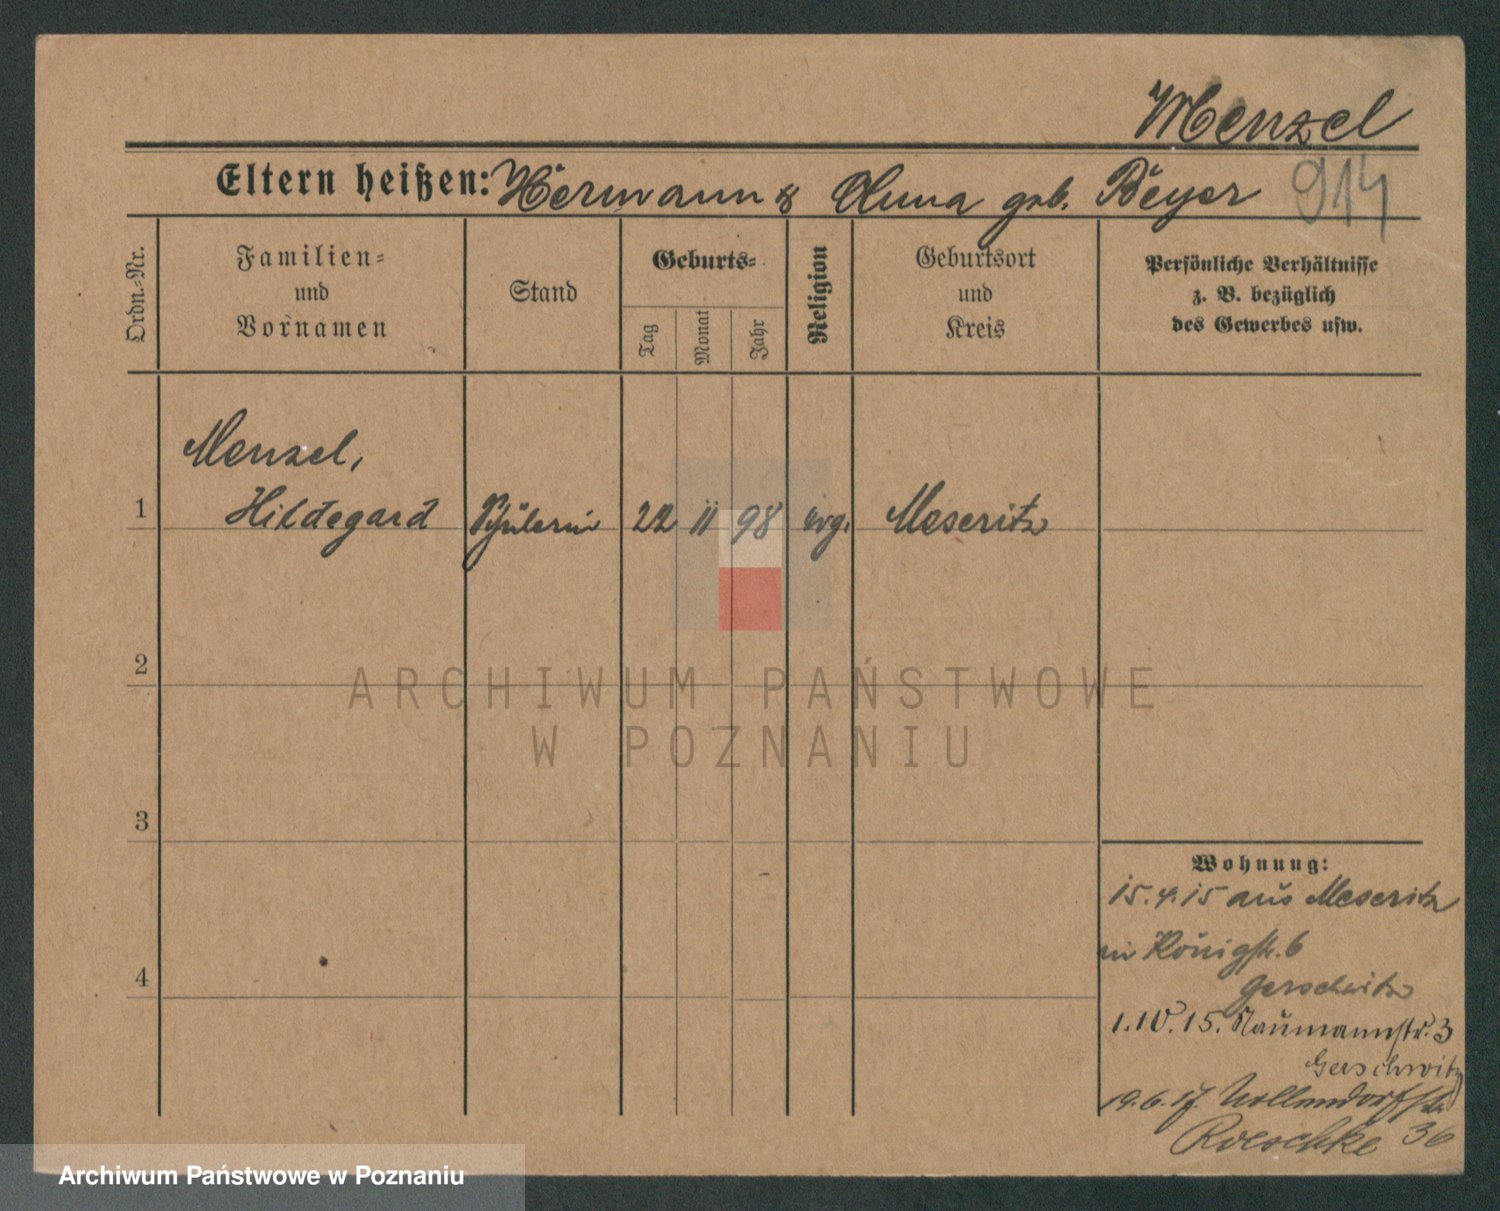 Menzel
Eltern heißen: Hermann & Anna geb. Beyer 914
Ordn.-Nr.
Familien-
und
Vornamen
Stand
Geburts-
Tag
Monat
Jahr
Religion
Geburtsort
und
Kreis
Persönliche Verhältnisse
z. B. bezüglich
des Gewerbes usw.
Menzel,
1 Hildegard Schülerin 22 11 98 evg. Meseritz
2
ARCHIWUM PAŃSTWOWE
W POZNANIU
3
Wohnung:
15.4.15 aus Meseritz
in Königstr. 6
4
Gerschwitz
1.10.15. Naumannstr. 3
Gerschwitz
19.6.17. Nollendorfstr.
Roeschke 36
Archiwum Państwowe w Poznaniu